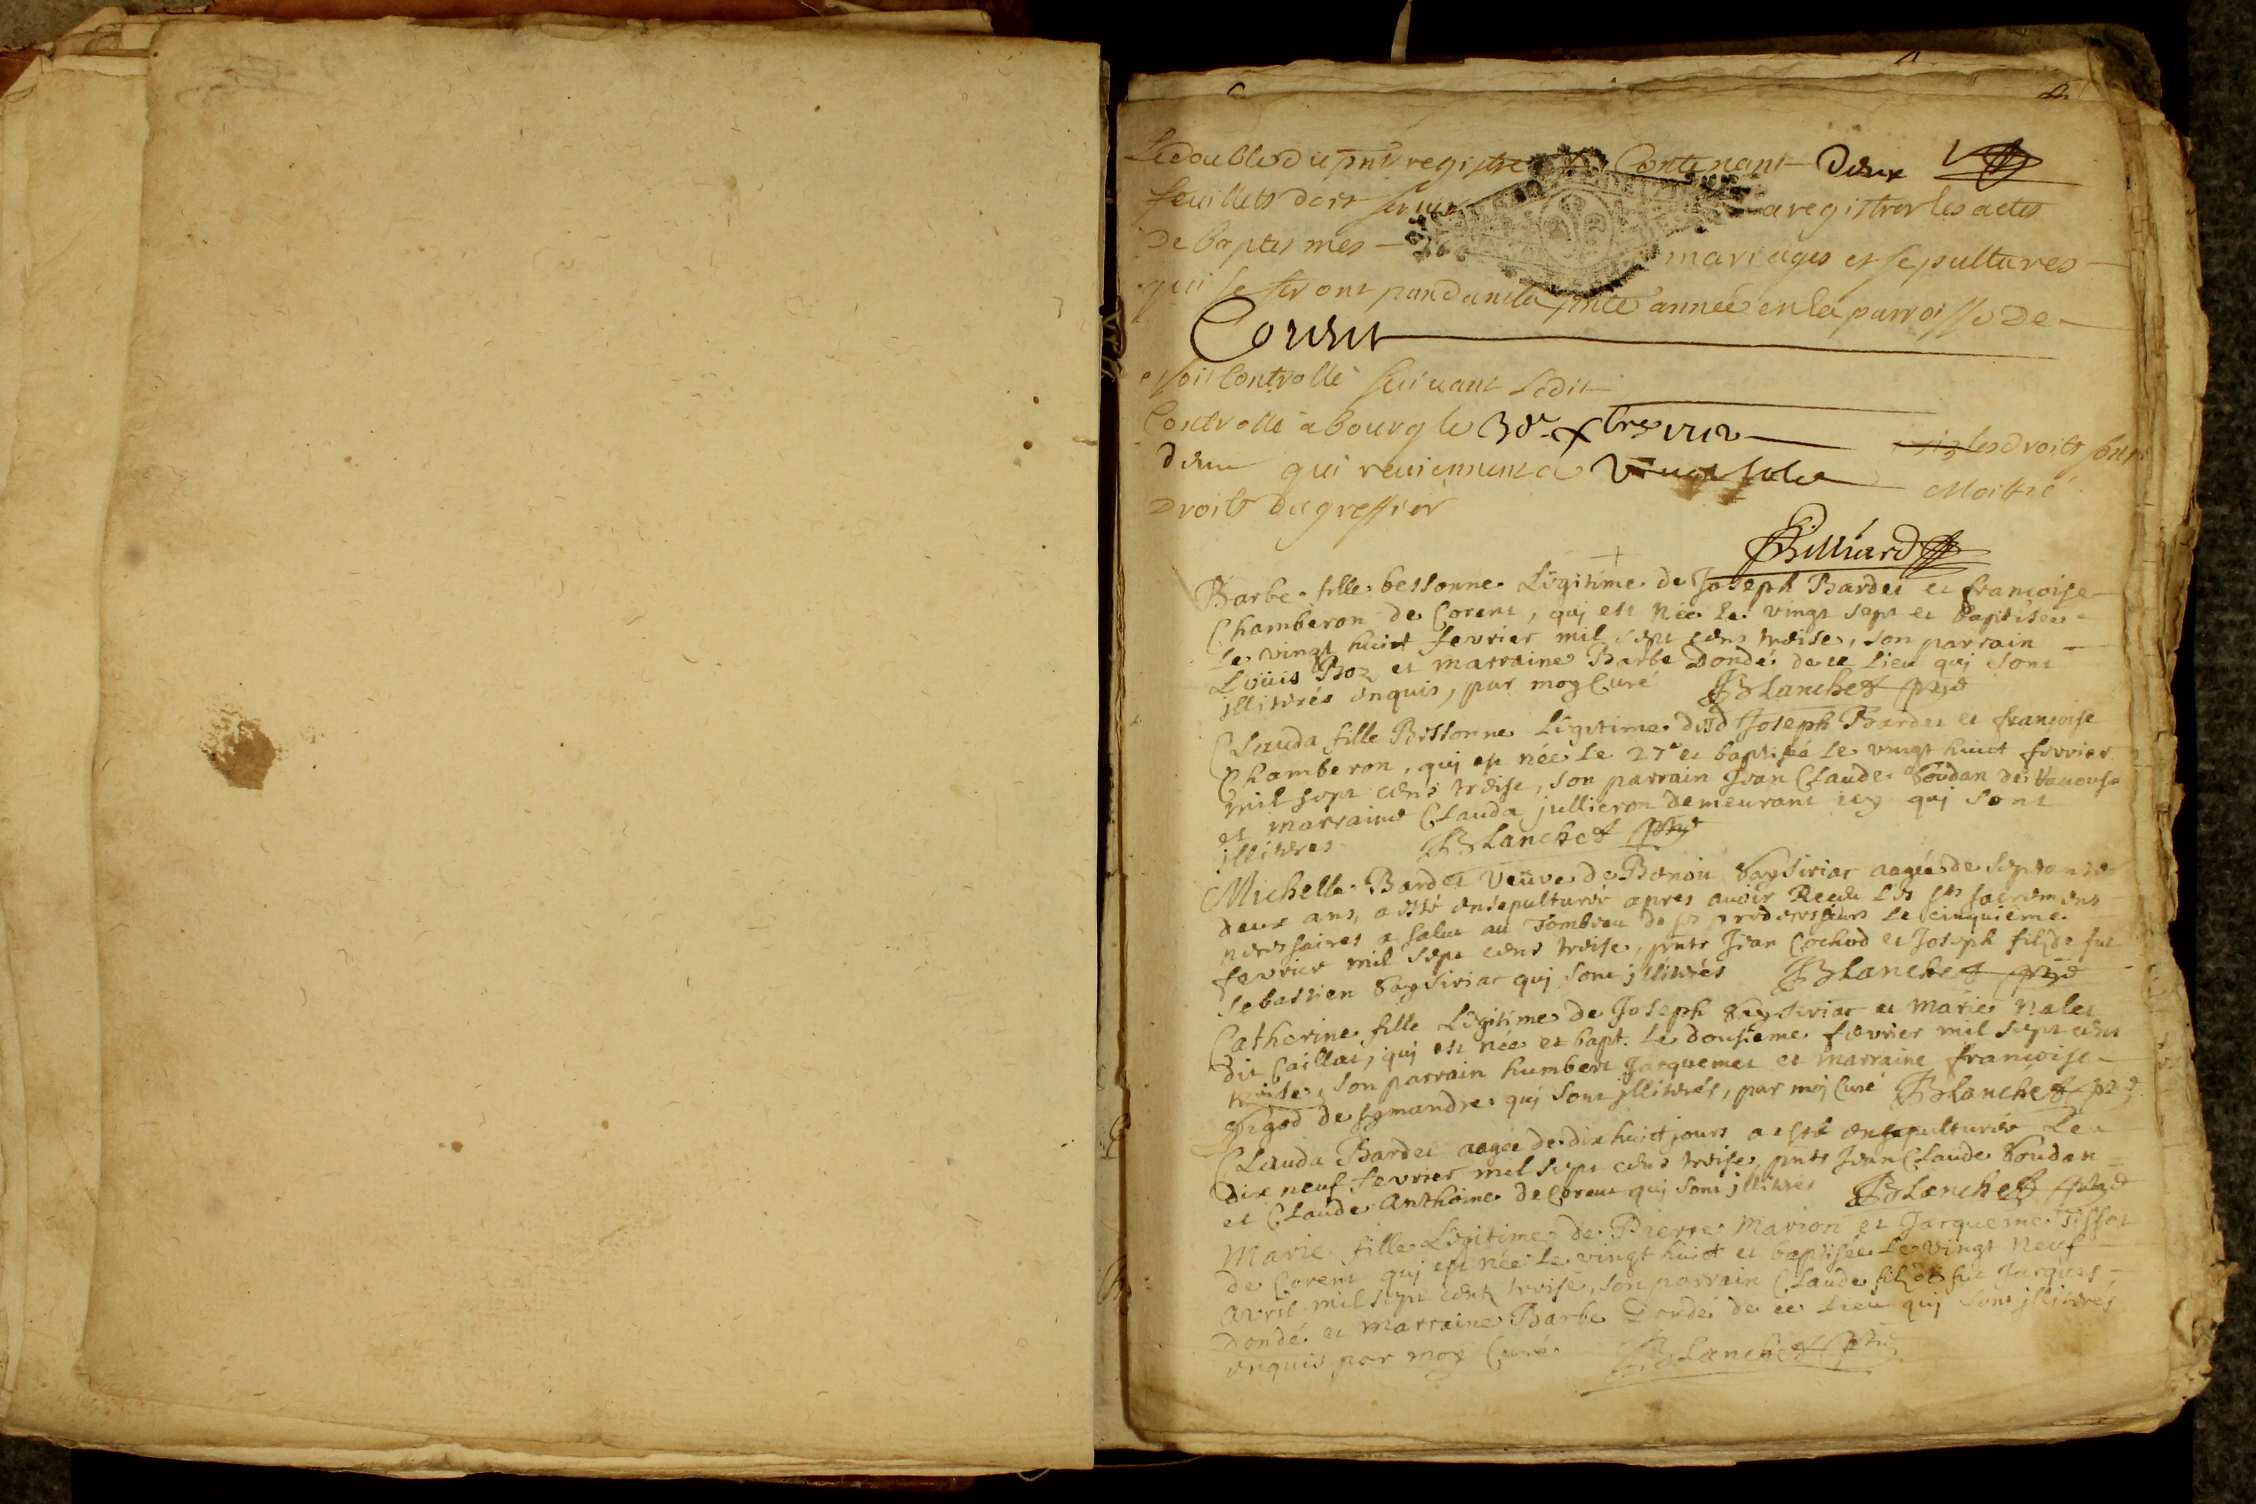 Le double du pnt registre Contenant Deux
feuillets doit servir a registrer les actes
De baptesmes mariages et sepultures
qui se feront pandant la pnte année en la parroisse De
Corent
et soit Controllé suivant Ledit
Controllé a bourg le 30e Xbre 1712 les droits sont
deux qui reviennent a Vingt sols Moitié
Droits du greffier
Billiard
Barbe fille bessonne Légitime de Joseph Bardet et francoise
Chamberon de Corent, qui est née le vingt sept et baptisée
le vingt huict fevrier mil sept cens treise, son parrain
Loüis Boz et marraine Barbe Dondé de ce Lieu qui sont
illiterés enquis, par moy Curé JBlanchet ptre
Clauda fille Bessonne Légitime dud Joseph Bardet et francoise
Chamberon, qui est née le 27e et baptisée le vingt huict fevrier
mil sept cens treise, son parrain Jean Claude Goudan de
et marraine Clauda jullieron demeurant icy qui sont
illiteres JBlanchet ptre
Michelle Bardet Veuve de Benoit aagée de septante
deux ans, a esté ensepulturée apres avoir Receu les sts sacremens
necessaires a salut au Tombeau de ses predecesseurs Le cinquième
fevrier mil sept cens treise, pnts Jean Cochod et Joseph fils de fut
Sebastien qui sont illiterés JBlanchet ptre
Catherine fille Légitime de Joseph et Marie Nalet
dit Caillat, qui est née et bapt. Le dousieme fevrier mil sept cens
treise, son parrain humbert Jacquemet et marraine francoise
gigod de symandre qui sont illiterés, par moy Curé JBlanchet ptre
Clauda Bardet aagée de dix huict jours a esté ensepulturée Le
dix neuf fevrier mil sept cens treise, pnts Jean Claude Goudan
et Claude Anthoine de Corent qui sont illiteres JBlanchet ptre
Marie fille Légitime de Pierre Marion et Jacqueme Tissot
de Corent qui est née Le vingt huict et baptisée Le vingt neuf
avril mil sept cens treise, son parrain Claude fils de fut Jacques
Dondé et marraine Barbe Dondé de ce Lieu qui sont illiteres
enquis par moy Curé JBlanchet ptre